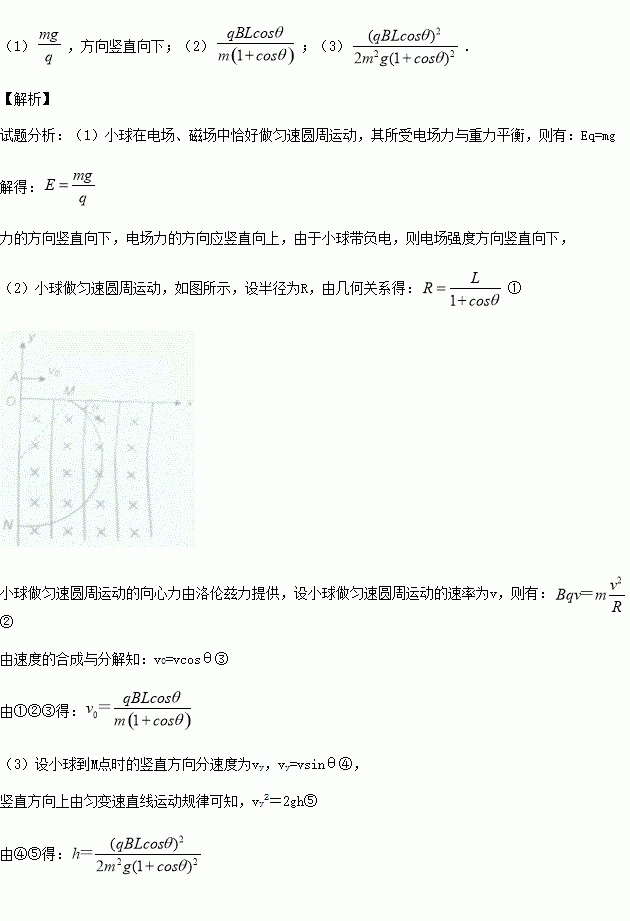 （1）mg/q，方向竖直向下；（2）qBLcosθ/m(1+cosθ)；（3）(qBLcosθ)²/2m²g(1+cosθ)²．
【解析】
试题分析：（1）小球在电场、磁场中恰好做匀速圆周运动，其所受电场力与重力平衡，则有：Eq=mg
解得：E=mg/q
力的方向竖直向下，电场力的方向应竖直向上，由于小球带负电，则电场强度方向竖直向下，
（2）小球做匀速圆周运动，如图所示，设半径为R，由几何关系得：R=L/1+cosθ ①
y
A v₀
M
O x
N
小球做匀速圆周运动的向心力由洛伦兹力提供，设小球做匀速圆周运动的速率为v，则有：Bqv=mv²/R
②
由速度的合成与分解知：v₀=vcosθ③
由①②③得：v₀=qBLcosθ/m(1+cosθ)
（3）设小球到M点时的竖直方向分速度为vᵧ，vᵧ=vsinθ④，
竖直方向上由匀变速直线运动规律可知，vᵧ²＝2gh⑤
由④⑤得：h=(qBLcosθ)²/2m²g(1+cosθ)²